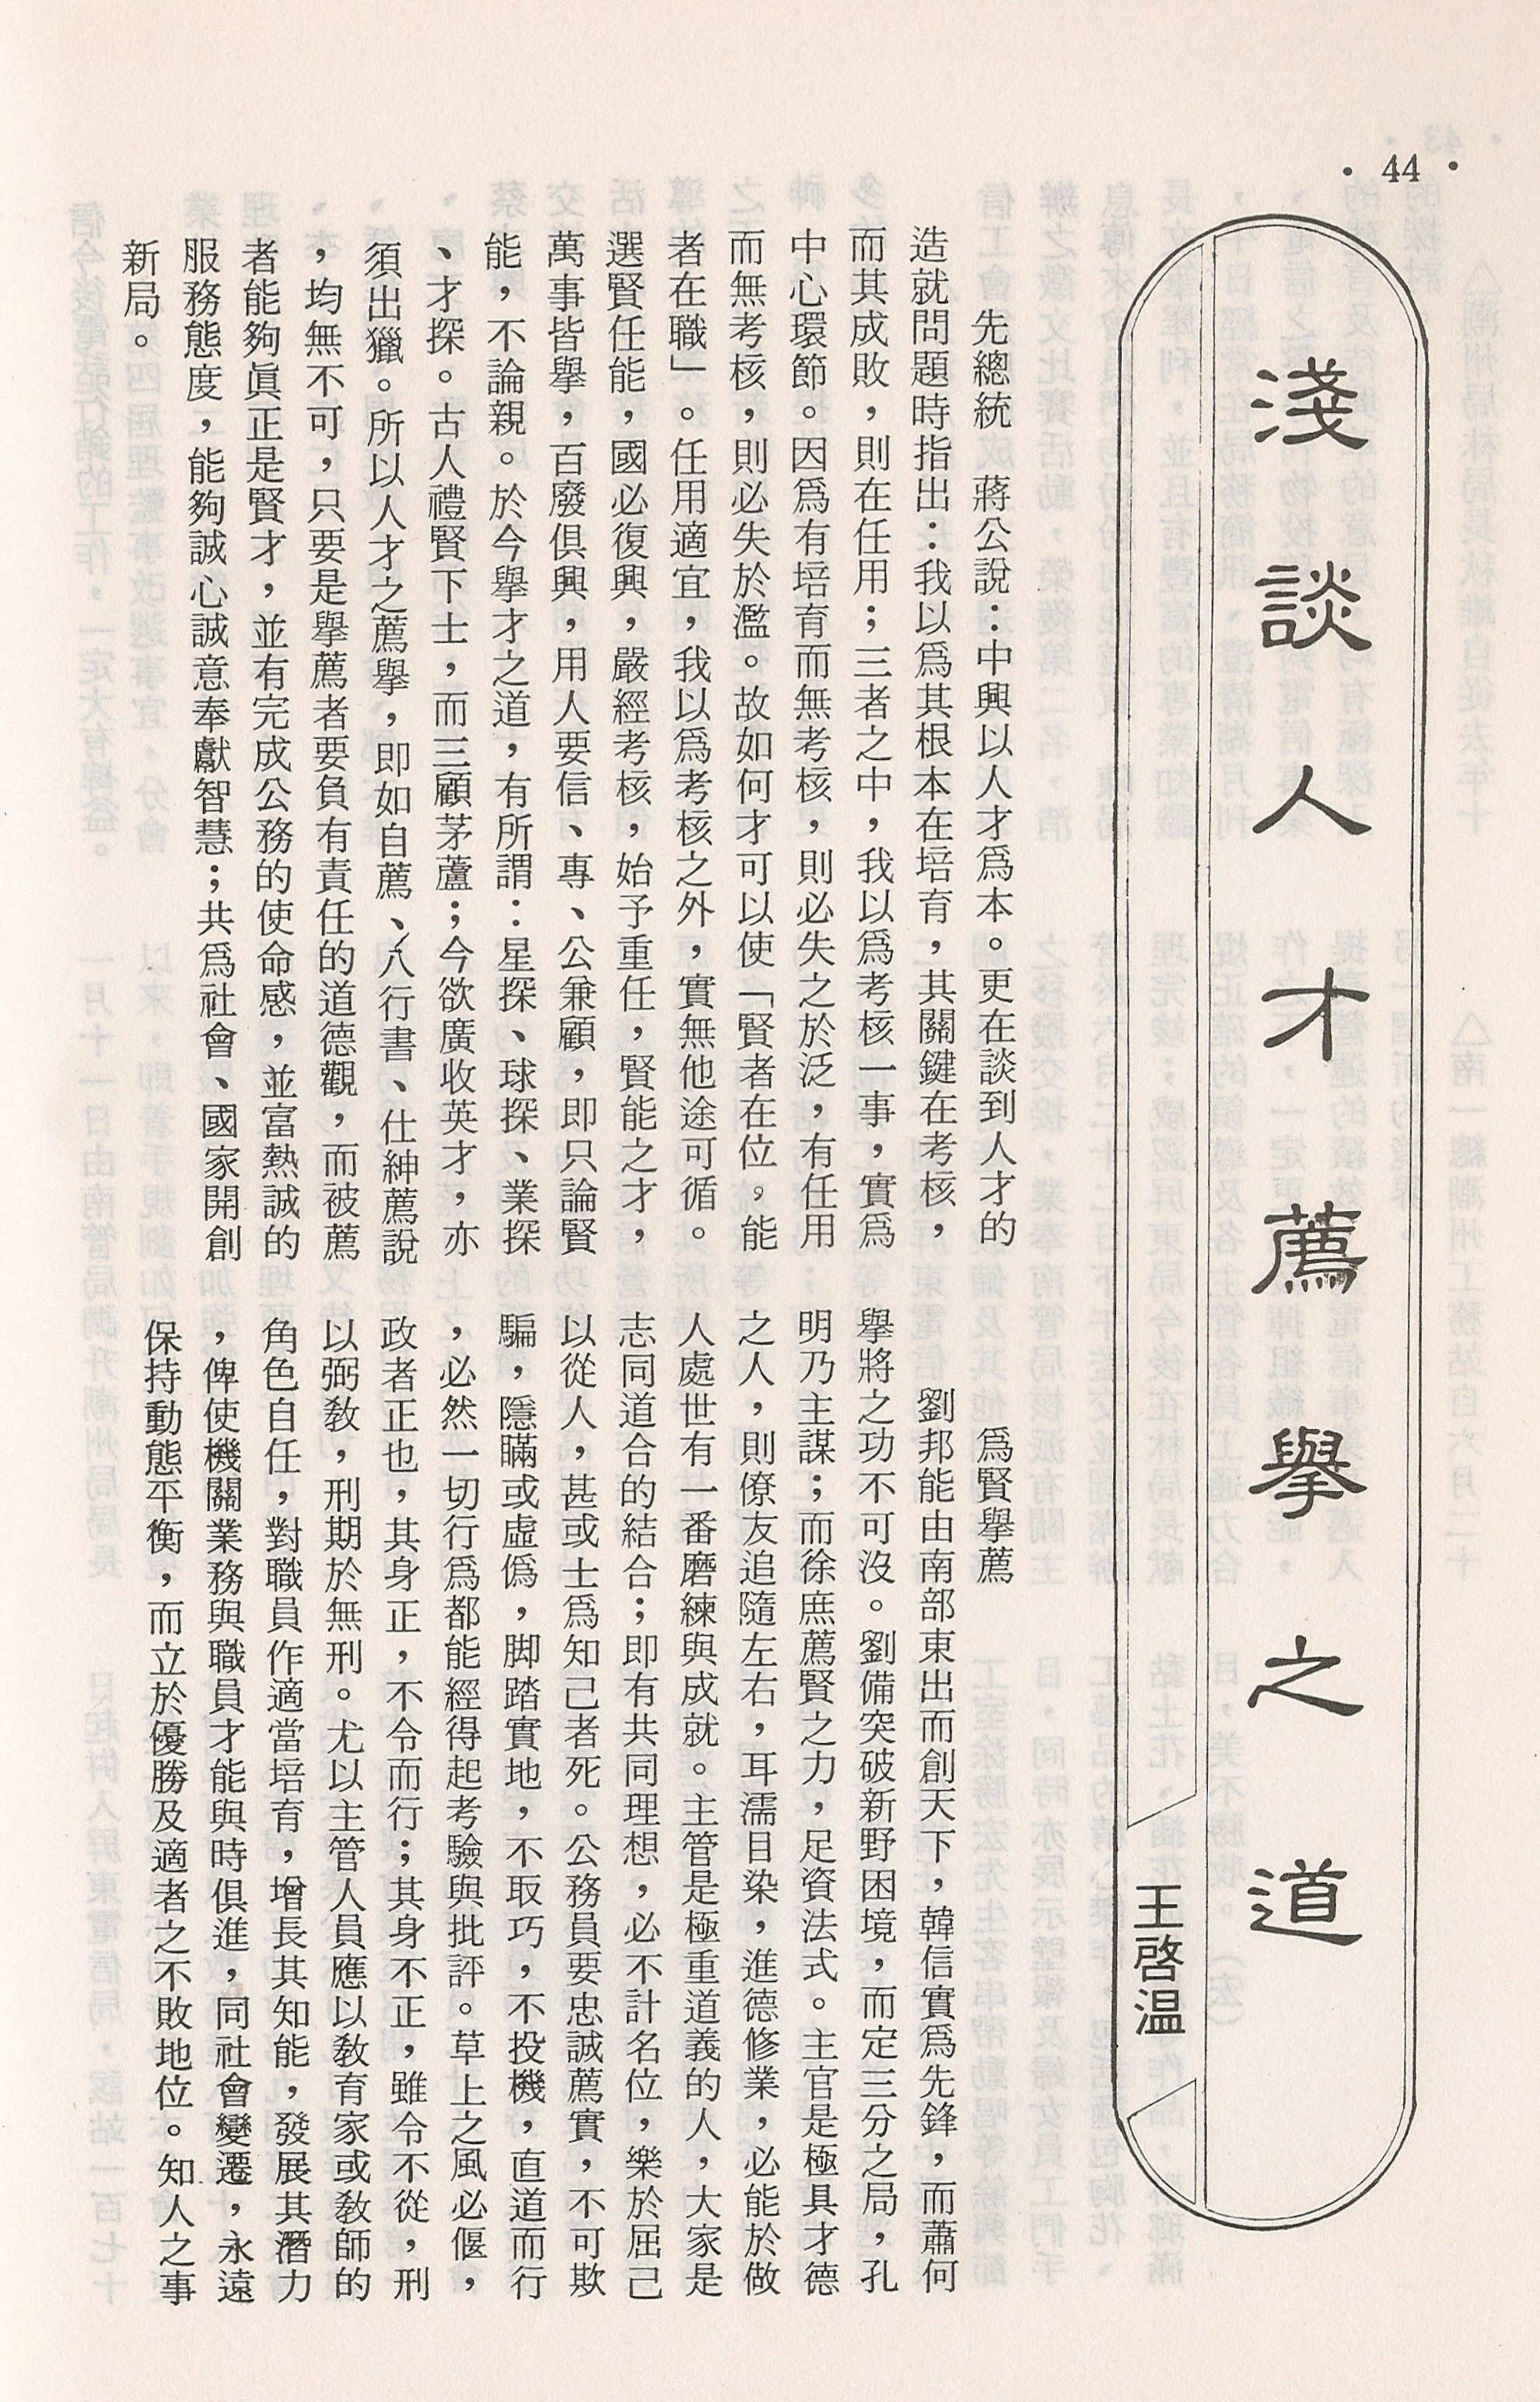 • 44 •
淺談人才薦舉之道
王啓温
先總統　蔣公說：中興以人才爲本。更在談到人才的
造就問題時指出：我以爲其根本在培育，其關鍵在考核，
而其成敗，則在任用；三者之中，我以爲考核一事，實爲
中心環節。因爲有培育而無考核，則必失之於泛，有任用
而無考核，則必失於濫。故如何才可以使「賢者在位。能
者在職」。任用適宜，我以爲考核之外，實無他途可循。
選賢任能，國必復興，嚴經考核，始予重任，賢能之才，
萬事皆舉，百廢俱興，用人要信、專、公兼顧，即只論賢
能，不論親。於今舉才之道，有所謂：星探、球探、業探
、才探。古人禮賢下士，而三顧茅蘆；今欲廣收英才，亦
須出獵。所以人才之薦舉，即如自薦、八行書、仕紳薦說
，均無不可，只要是舉薦者要負有責任的道德觀，而被薦
者能夠眞正是賢才，並有完成公務的使命感，並富熱誠的
服務態度，能夠誠心誠意奉獻智慧；共爲社會、國家開創
新局。
爲賢舉薦
劉邦能由南部東出而創天下，韓信實爲先鋒，而蕭何
舉將之功不可沒。劉備突破新野困境，而定三分之局，孔
明乃主謀；而徐庶薦賢之力，足資法式。主官是極具才德
之人，則僚友追隨左右，耳濡目染，進德修業，必能於做
人處世有一番磨練與成就。主管是極重道義的人，大家是
志同道合的結合；即有共同理想，必不計名位，樂於屈己
以從人，甚或士爲知己者死。公務員要忠誠薦實，不可欺
騙，隱瞞或虛僞，脚踏實地，不取巧，不投機，直道而行
，必然一切行爲都能經得起考驗與批評。草上之風必偃，
政者正也，其身正，不令而行；其身不正，雖令不從，刑
以弼敎，刑期於無刑。尤以主管人員應以敎育家或敎師的
角色自任，對職員作適當培育，增長其知能，發展其潛力
，俾使機關業務與職員才能與時俱進，同社會變遷，永遠
保持動態平衡，而立於優勝及適者之不敗地位。知人之事